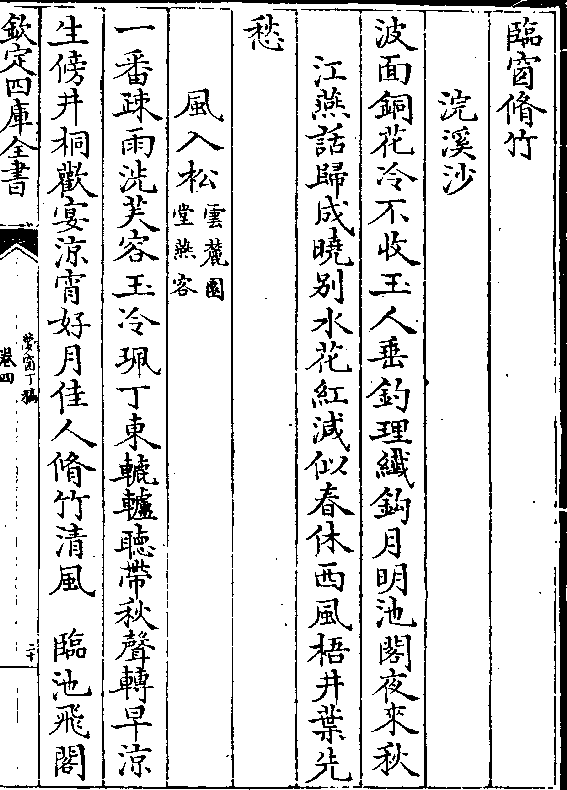 臨窗脩竹
浣溪沙
波面銅花冷不收玉人垂釣理纖鈎月明池閣夜來秋
江燕話歸成曉别水花紅減似春休西風梧井葉先
愁
風入松
雲麓園
堂燕客
一番疎雨洗芙容玉冷珮丁東轆轤聴帶秋聲轉早涼
生傍井桐歡宴涼宵好月佳人脩竹清風 臨池飛閣
欽定四庫全書
夢窗丁稿
卷四
二十